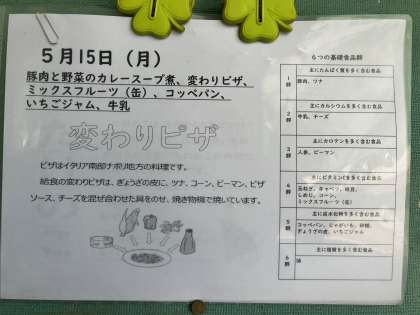 5月15日（月）
豚肉と野菜のカレースープ煮、変わりピザ、
ミックスフルーツ（缶）、コッペパン、
いちごジャム、牛乳
変わりピザ
ピザはイタリア南部ナポリ地方の料理です。
給食の変わりピザは、ぎょうざの皮に、ツナ、コーン、ピーマン、ピザ
ソース、チーズを混ぜ合わせた具をのせ、焼き物機で焼いています。
６つの基礎食品群
1群
主にたんぱく質を多く含む食品
豚肉、ツナ
2群
主にカルシウムを多く含む食品
牛乳、チーズ
3群
主にカロテンを多く含む食品
人参、ピーマン
4群
主にビタミンCを多く含む食品
玉ねぎ、キャベツ、枝豆、
しめじ、コーン、
ミックスフルーツ（缶）
5群
主に炭水化物を多く含む食品
コッペパン、じゃがいも、砂糖、
ぎょうざの皮、いちごジャム
6群
主に脂質を多く含む食品
油